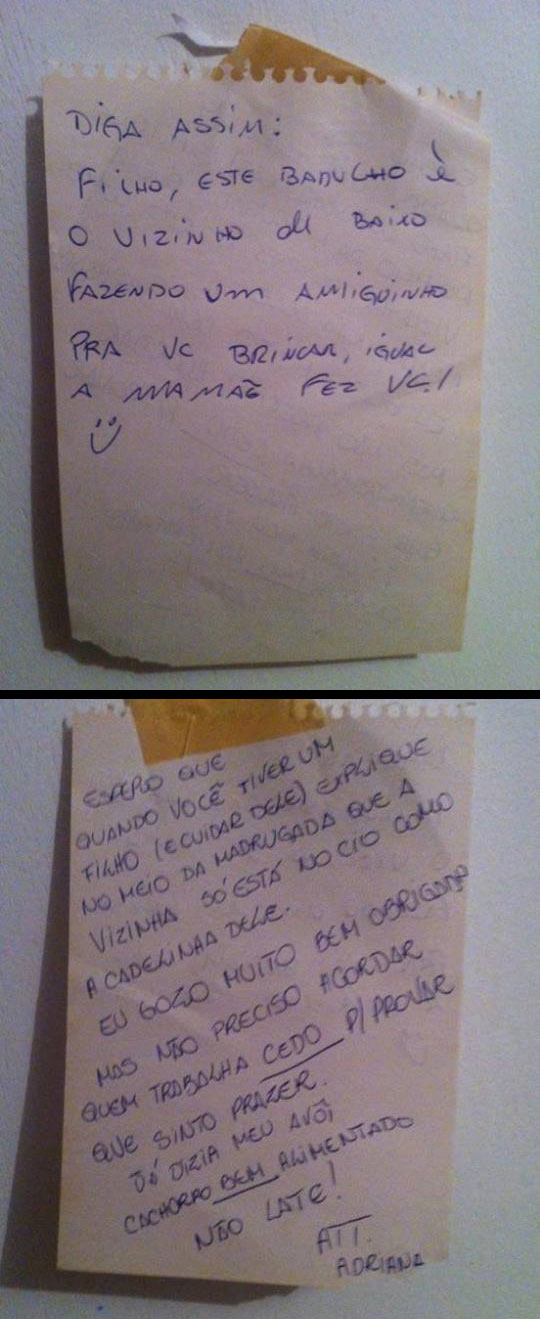 DIGA ASSIM:
FILHO, ESTE BARULHO è
O VIZINHO de BAIXO
FAZENDO Um AMIGUINHO
PRA VC BRINCAR, IGUAL
A MAMÃE FEZ VC!
ESPERO QUE
QUANDO VOCÊ TIVER UM
FILHO (E CUIDAR DELE) EXPLIQUE
NO MEIO DA MADRUGADA QUE A
VIZINHA SÓ ESTÁ NO CIO COMO
A CADELINHA DELE.
EU GOZO MUITO BEM OBRIGADA
MAS NÃO PRECISO ACORDAR
QUEM TRABALHA CEDO P/ PROVAR
QUE SINTO PRAZER.
JÁ DIZIA MEU AVÔ;
CACHORRO BEM ALIMENTADO
NÃO LATE!
ATT.
ADRIANA